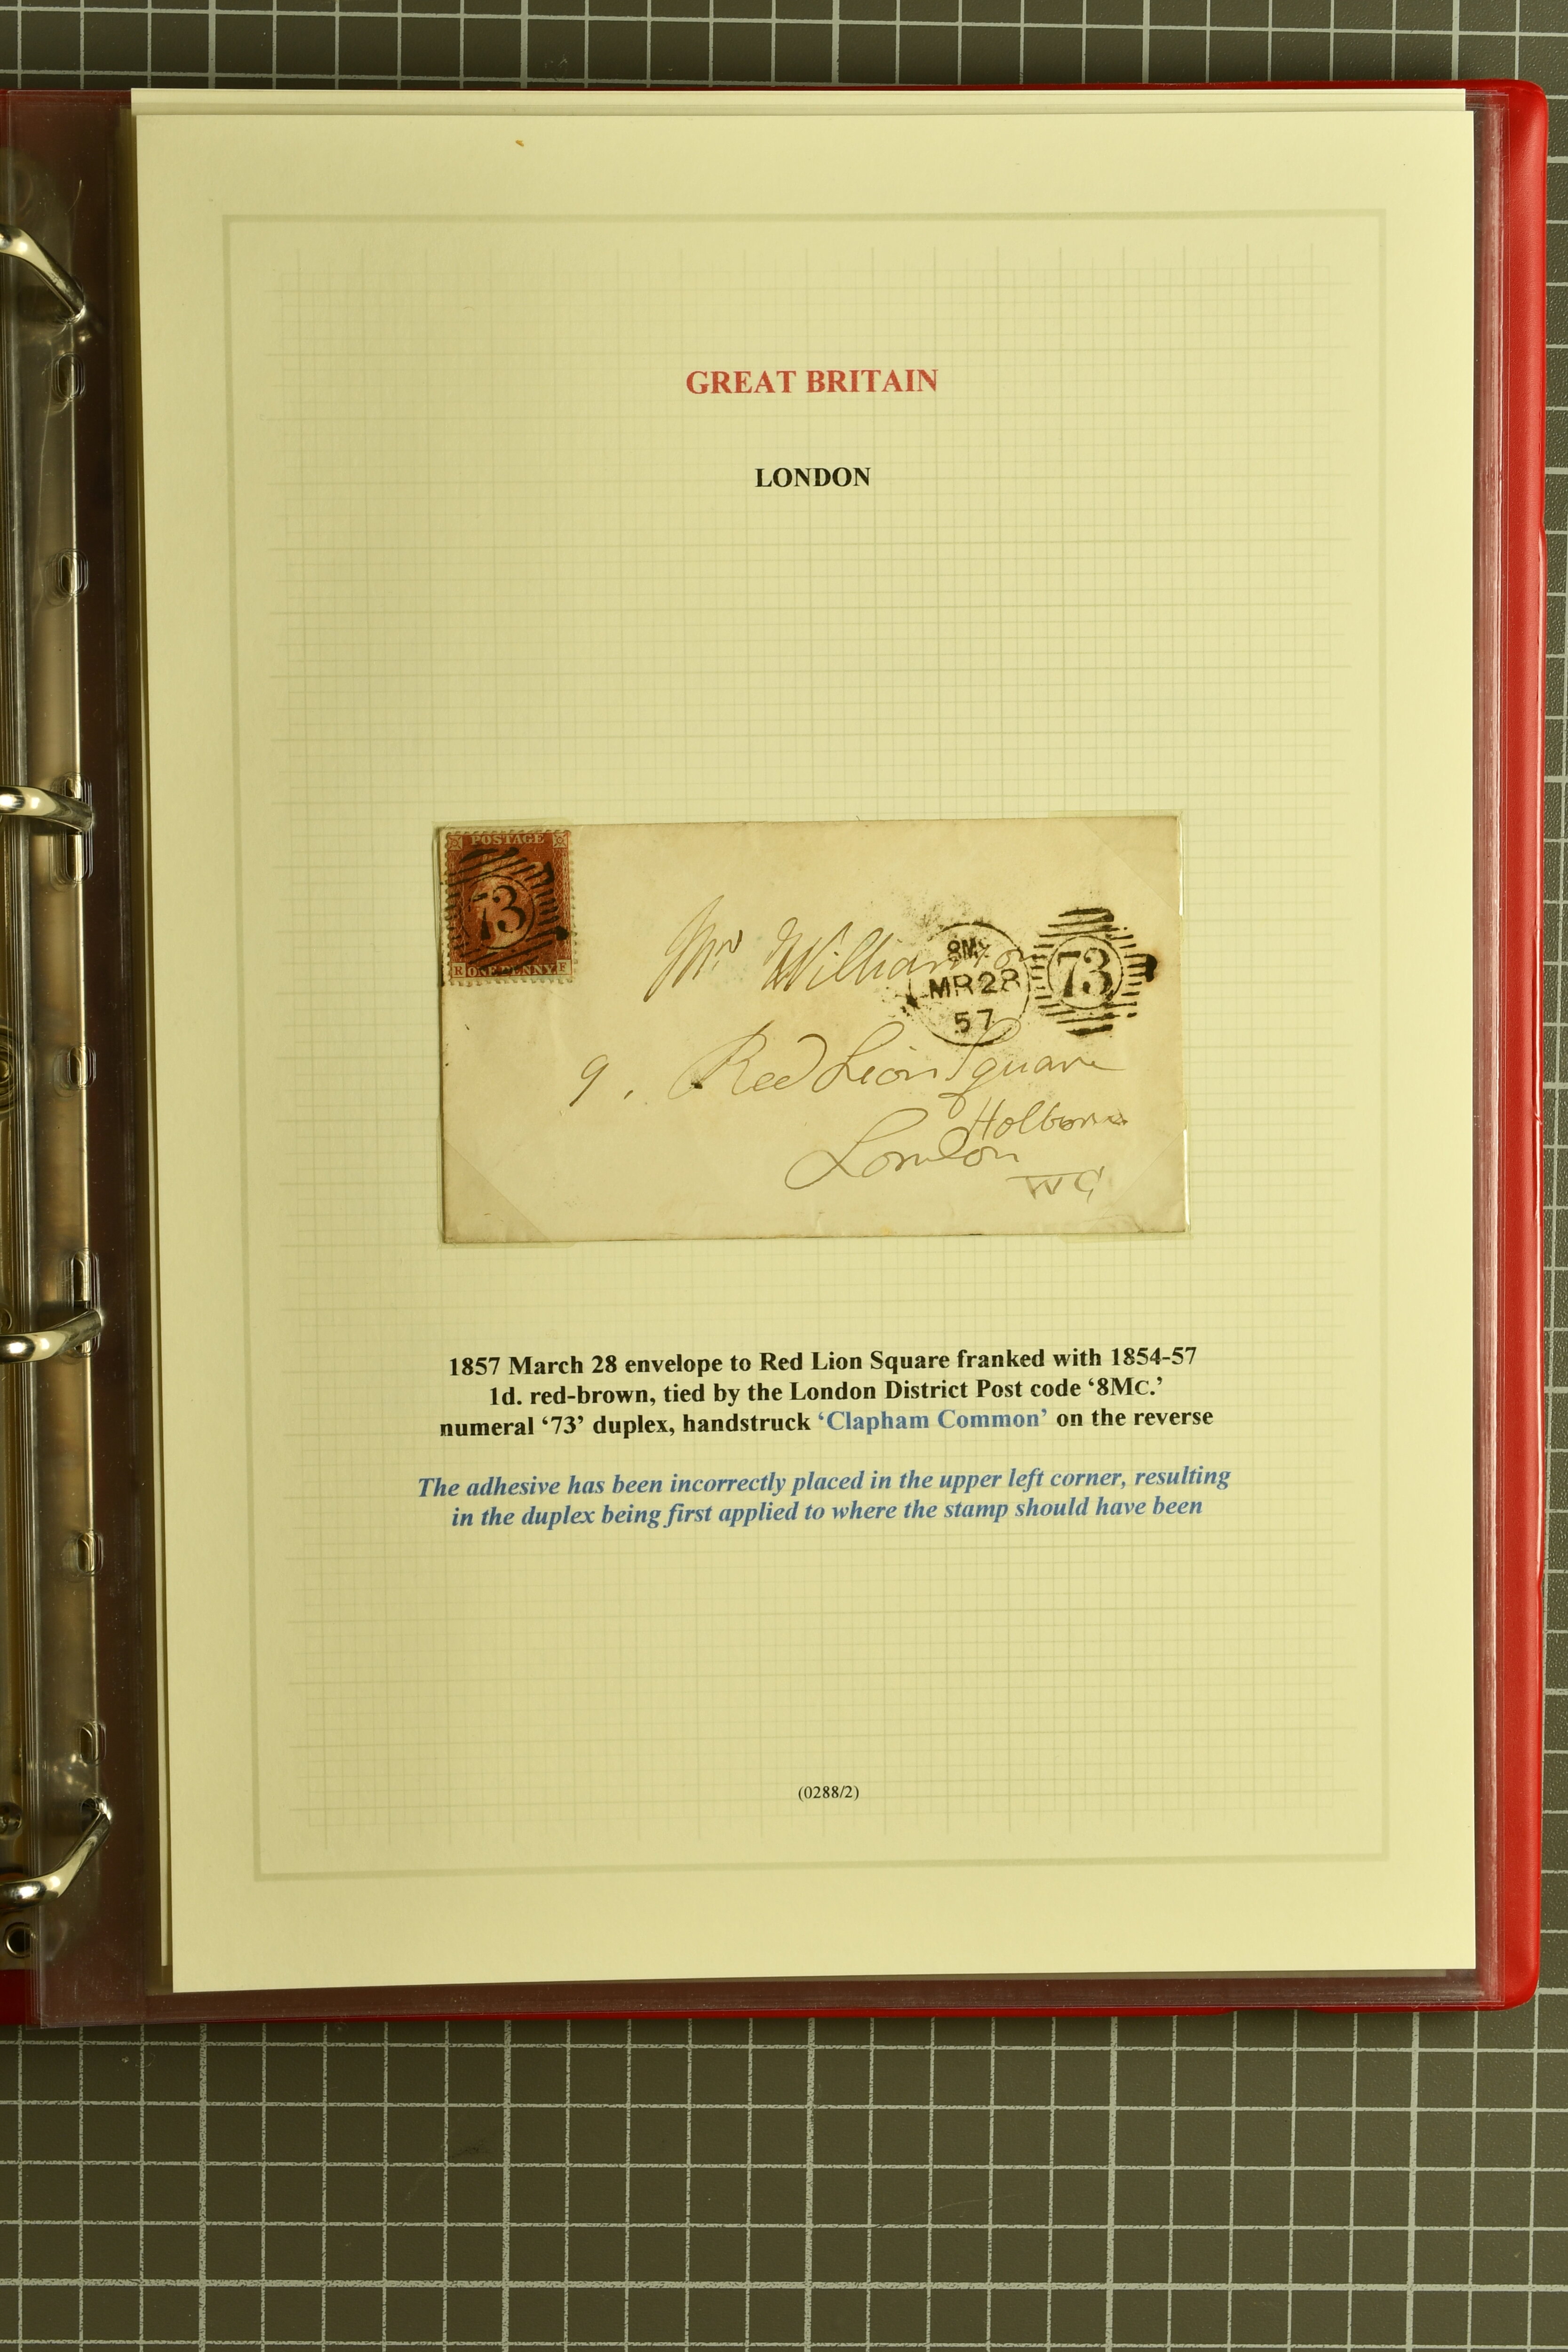 GREAT BRITAIN
LONDON
POSTAGE
73
R ONE PENNY F
8Mc
MR 28
57
73
Mrs Williamson
9, Red Lion Square
Holborn
London
WC
1857 March 28 envelope to Red Lion Square franked with 1854-57
1d. red-brown, tied by the London District Post code ‘8Mc.’
numeral ‘73’ duplex, handstruck ‘Clapham Common’ on the reverse
The adhesive has been incorrectly placed in the upper left corner, resulting
in the duplex being first applied to where the stamp should have been
(0288/2)